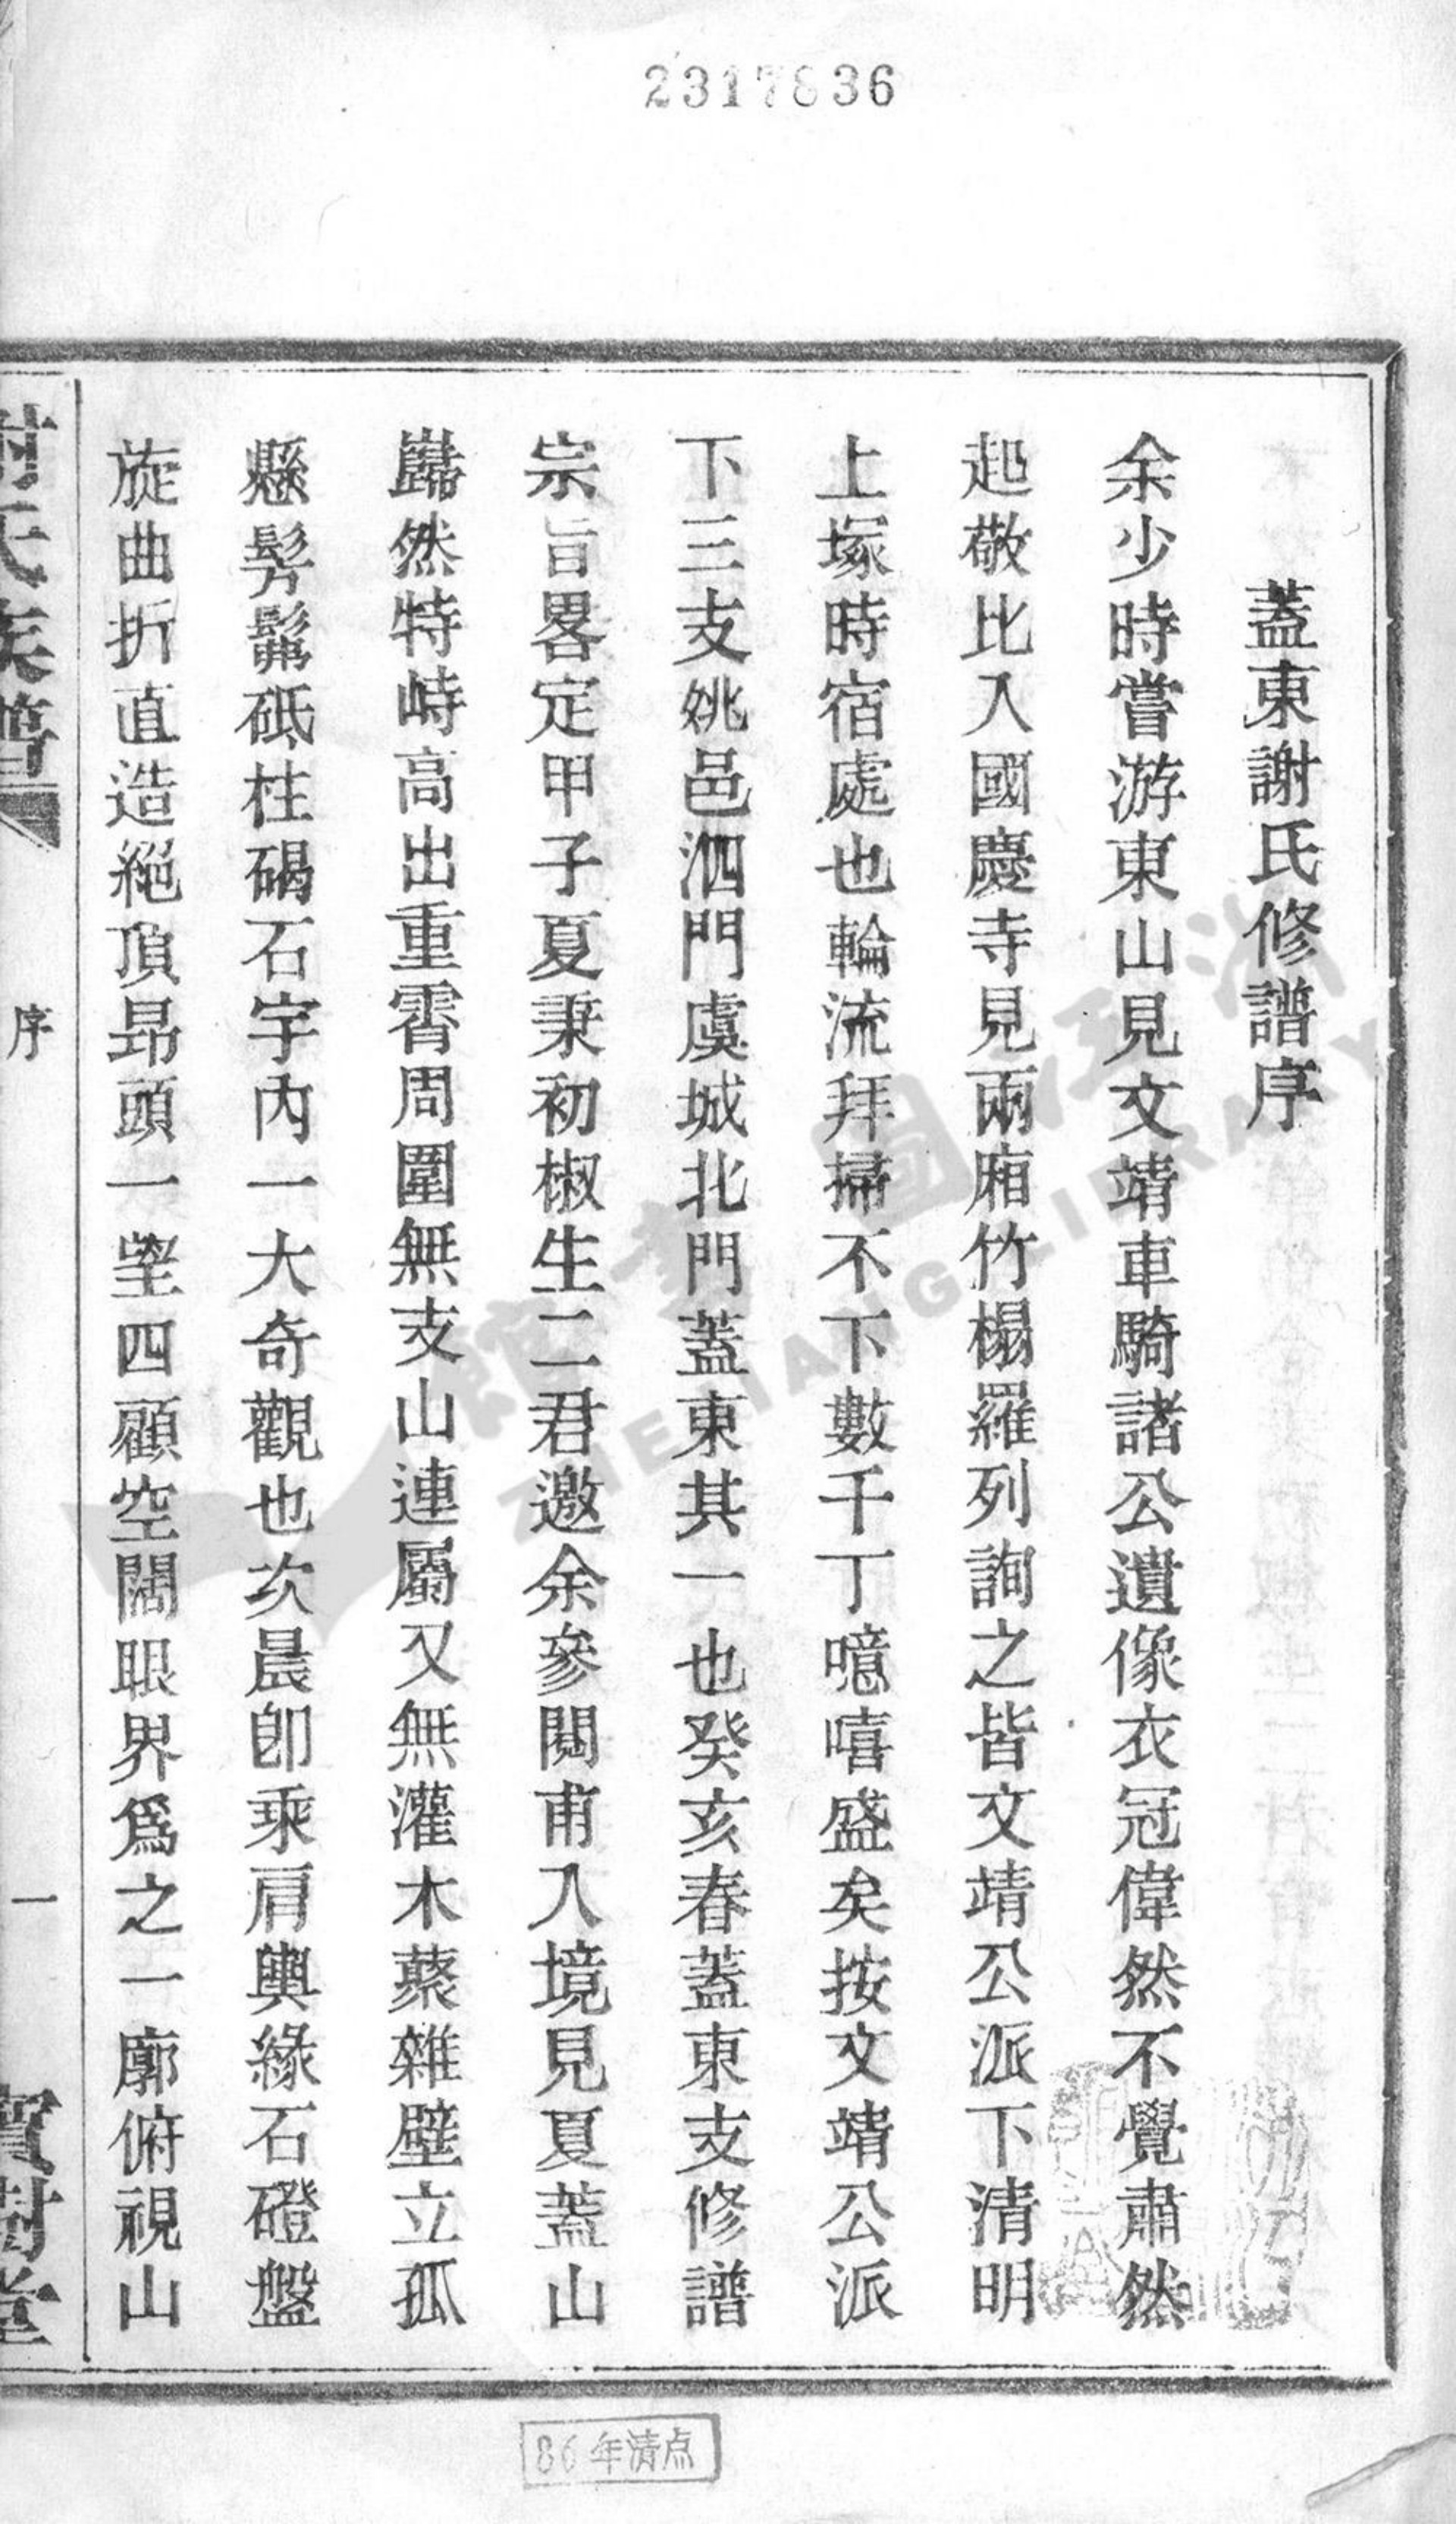 2317836
蓋東謝氏修譜序
余少時嘗游東山見文靖車騎諸公遺像衣冠偉然不覺肅然
起敬比入國慶寺見兩廂竹榻羅列詢之皆文靖公派下清明
上塚時宿處也輪流拜掃不下數千丁噫嘻盛矣按文靖公派
下三支姚邑泗門虞城北門蓋東其一也癸亥春蓋東支修譜
宗旨畧定甲子夏秉初椒生二君邀余參閱甫入境見夏蓋山
巋然特峙高出重霄周圍無支山連屬又無灌木蘩雜壁立孤
懸髣髴砥柱碣石宇內一大奇觀也次晨卽乘肩輿緣石磴盤
旋曲折直造絕頂昂頭一望四顧空闊眼界爲之一廓俯視山
謝氏族譜
序
一
寶樹堂
浙江圖書館
ZHEJIANG LIBRARY
86年清点